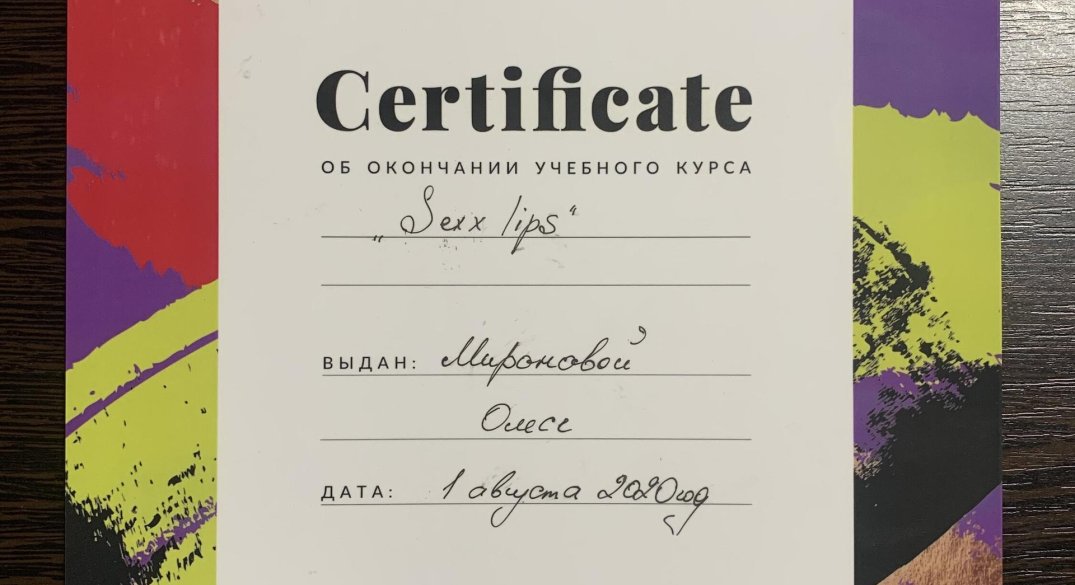 Certificate
ОБ ОКОНЧАНИИ УЧЕБНОГО КУРСА
„Sexx lips“
ВЫДАН: Мироновой
Олесе
ДАТА: 1 августа 2020 год